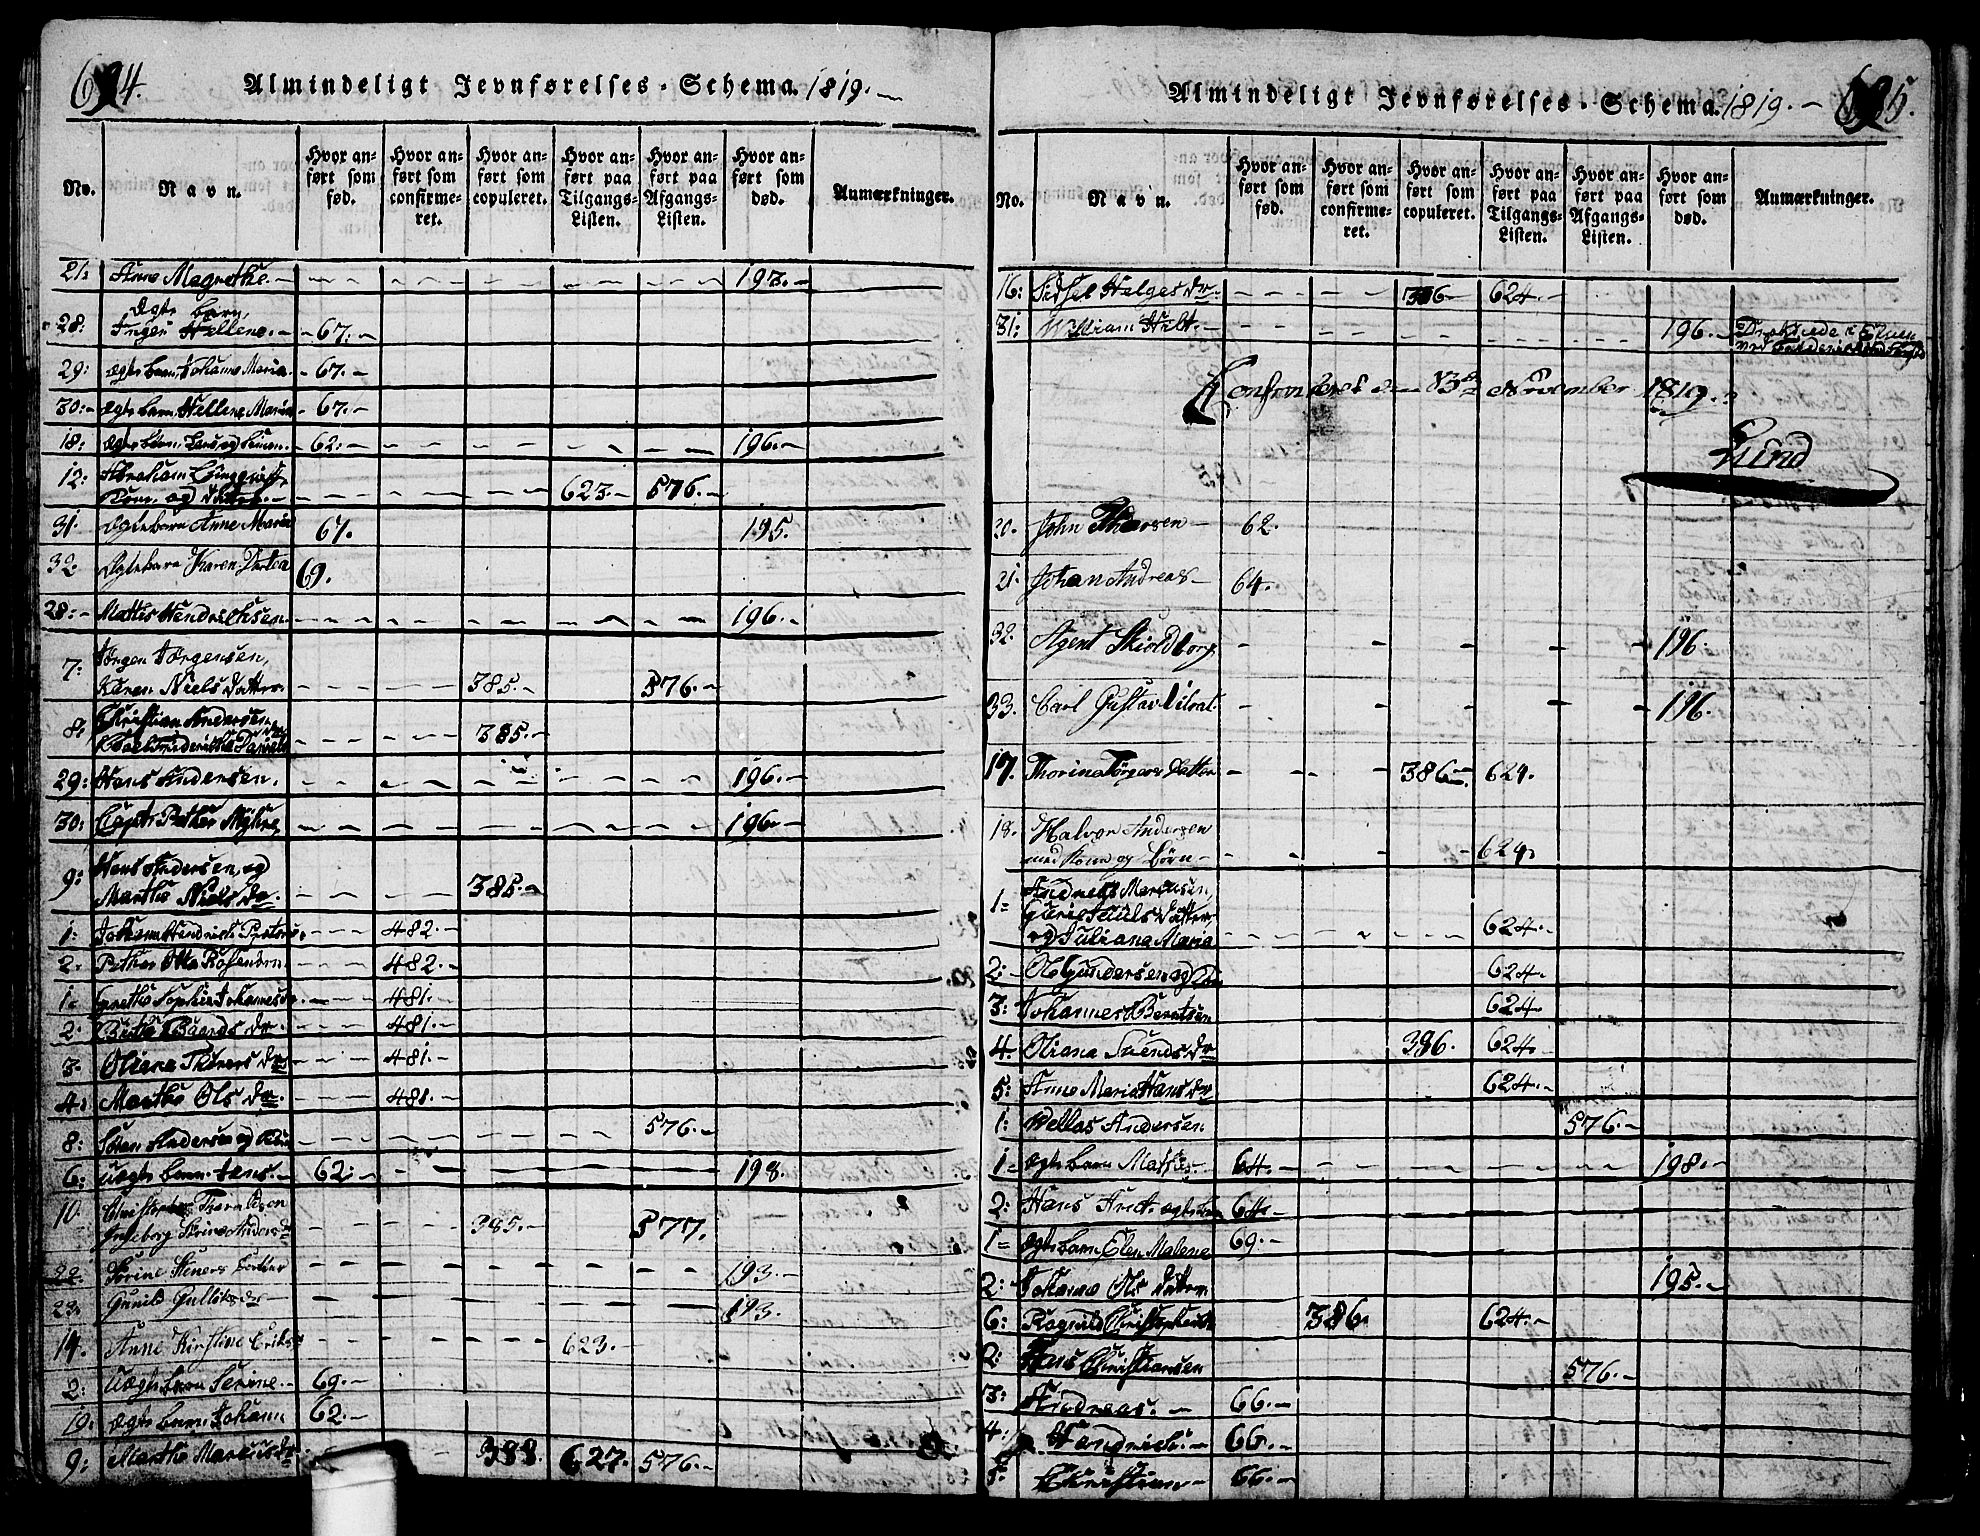 694.
Almindeligt Jevnførelses-Schema. 1819.
No.
Navn.
Hvor anført som fød.
Hvor anført som confirmeret.
Hvor anført som copuleret.
Hvor anført paa Tilgangs-Listen.
Hvor anført paa Afgangs-Listen.
Hvor anført som død.
Anmærkninger.
21: Anne Magrethe. 193.
Ægte barn,
28: Inger Hellene. 67.
29: Ægte barn, Johanne Maria. 67.
30: Ægte barn, Hellene Maria 67.
18: Ægte børn, Lars og Simen. 62: 196.
12: Abraham
Kone og datter. 623. 576.
31. Ægtebarn Anne Maria 67. 195.
32. Ægtebarn Karen 69.
28: Mattis Hendrichsen 196.
7: Jørgen Jørgensen,
Karen Niels datter 385. 576.
8: Christian Andersen,
Daniels 385.
29: Hans Andersen, 196.
30: Capt: Pether 196.
9: Hans Andersen, og
Marthe Niels Dr. 385.
1: Johann Hendrich 482.
2. Pether Otto Rosendren 482.
1. Sophie Johannes 481.
2. Baards dr. 481.
3. Oliana Thores dr 481.
4. Marthe Ols dr. 481.
8: Andersen og Kone 576.
6: Uægte barn Jens. 62: 198.
10. Christopher Thoraldsen
Ingeborg Andersdr 385. 577.
22. Steners Datter 193.
23. Gunild Gulliksdr 193.
14. Anne Kirstine Eriks 623.
2: Uægte barn Serine. 69.
19: Ægte barn Johann 62.
9: Marthe Marcusdr. 388. 627. 576.
695.
Almindeligt Jevnførelses-Schema. 1819.
No.
Navn.
Hvor anført som fød.
Hvor anført som confirmeret.
Hvor anført som copuleret.
Hvor anført paa Tilgangs-Listen.
Hvor anført paa Afgangs-Listen.
Hvor anført som død.
Anmærkninger.
16: Sidsel Helges dr. 386 624.
31: William Hilt. 196. Druknede i Elven
ved
Konfereret den 13de November 1819.
Lund
20. John Thorsen 62.
21. Johan Andreas 64.
32. Agent Skioldborg 196
33. Carl Gustav 196.
17. Thorina Jørgens Datter 386 624.
18. Halvor Andersen
med Kone og Børn 624.
1 Andreas Marcusen,
Datter,
og Juliana Maria 624.
2: Ole Gundersen og 624.
3: Johannes Berntsen 624
4. Oliana Svends dr 386. 624.
5: Anne Maria Hans dr 624.
1: Pellas Andersen 576.
1 Ægte barn Mathis. 64. 198.
2: Hans ægte barn 64.
1 ægte barn, Elen Malene 69.
2: Johanne Ols datter 195.
6: Ragnild 386 624.
2: Hans Christiansen 576.
3: Andreas. 66.
4: Hendrich. 66.
5. Christian 66.